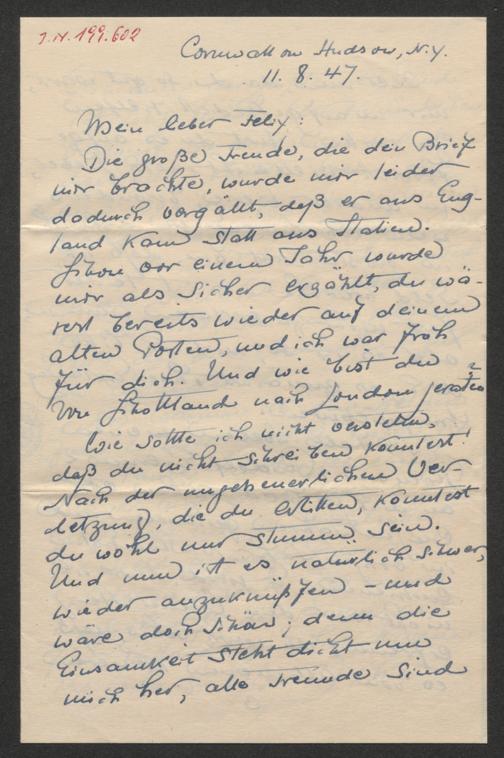 J.N. 199.602
Cornwall on Hudson, N.Y.
11. 8. 47.
Mein lieber Felix:
Die große Freude, die dein Brief
mir brachte, wurde mir leider
dadurch vergällt, daß er aus Eng-
land kam statt aus Italien.
Schon vor einem Jahr wurde
mir als sicher erzählt, du wä-
rest bereits wieder auf deinem
alten Posten, und ich war froh
für dich. Und wie bist du
von Schottland nach London geraten?
Wie sollte ich nicht verstehen,
daß du nicht schreiben konntest!
Nach der ungeheuerlichen Ver-
letzung, die du erlitten, konntest
du wohl nur stumm sein.
Und nun ist es natürlich schwer,
wieder anzuknüpfen – und
wäre doch schön; denn die
Einsamkeit steht dicht um
mich her, alle Freunde sind